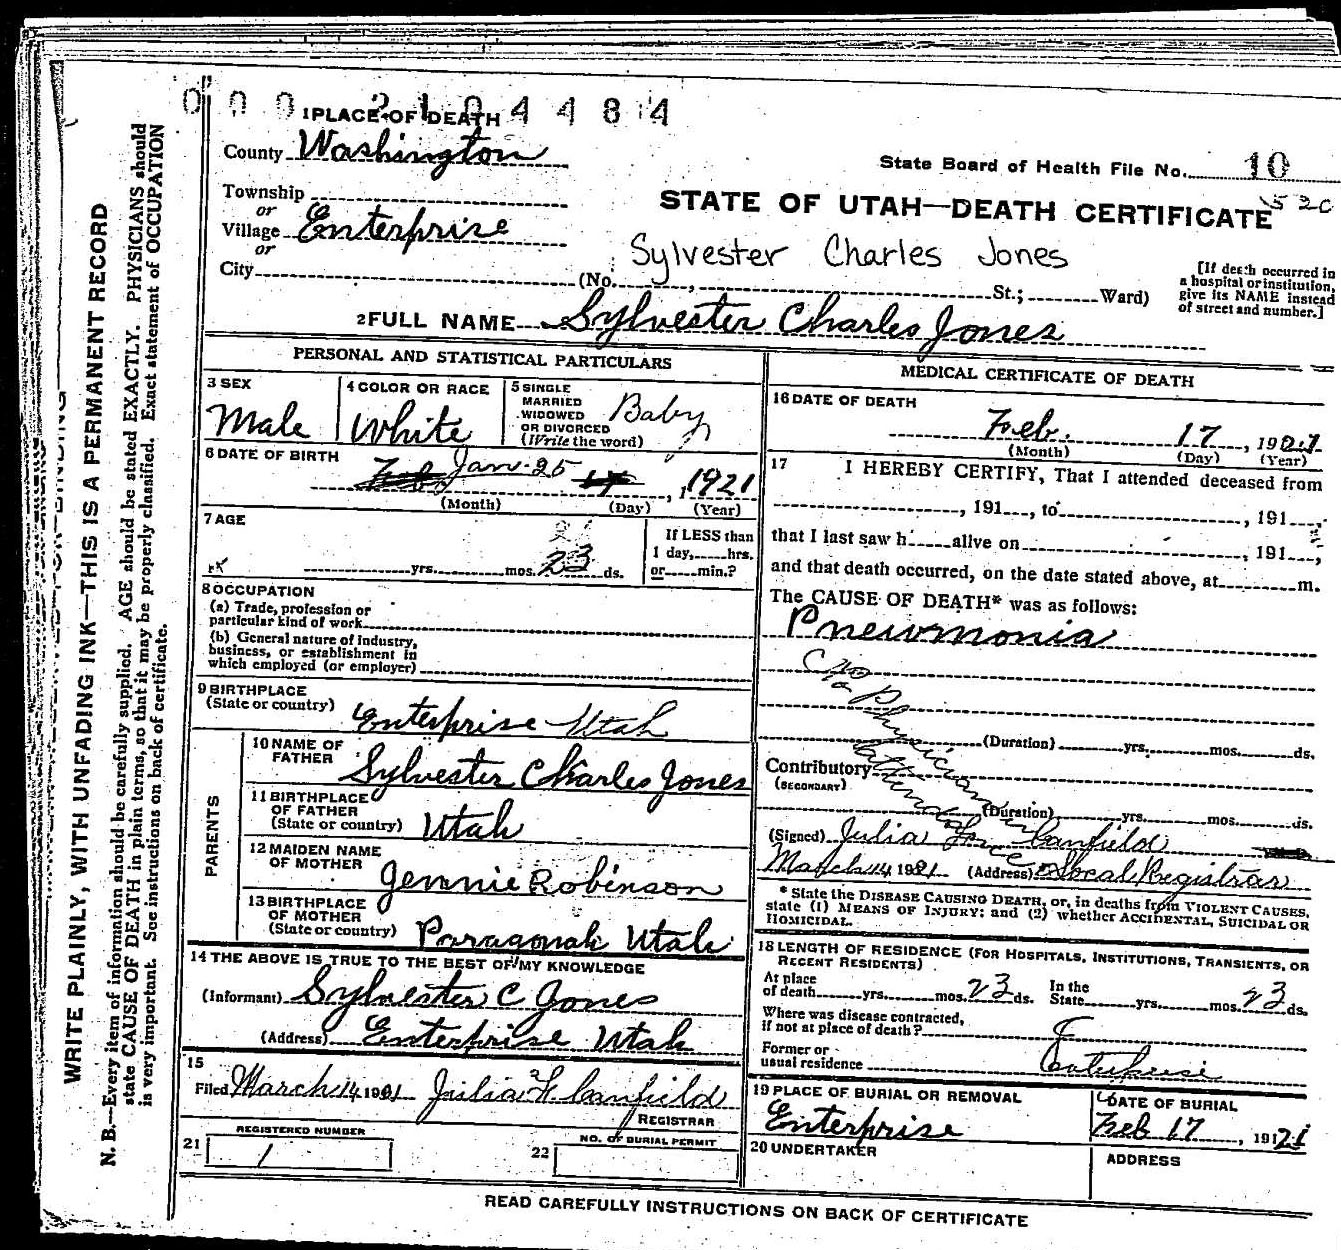 WRITE PLAINLY, WITH UNFADING INK—THIS IS A PERMANENT RECORD
N. B.—Every item of information should be carefully supplied. AGE should be stated EXACTLY. PHYSICIANS should
state CAUSE OF DEATH in plain terms, so that it may be properly classified. Exact statement of OCCUPATION
is very important. See instructions on back of certificate.
1 PLACE OF DEATH
County Washington
State Board of Health File No. 10
Township
or
STATE OF UTAH—DEATH CERTIFICATE
Village Enterprise
or
Sylvester Charles Jones
City (No. , St.; Ward)
[If death occurred in
a hospital or institution,
give its NAME instead
of street and number.]
2 FULL NAME Sylvester Charles Jones
PERSONAL AND STATISTICAL PARTICULARS
3 SEX
Male
4 COLOR OR RACE
White
5 SINGLE
MARRIED
WIDOWED
OR DIVORCED
(Write the word)
Baby
6 DATE OF BIRTH
Jan. 25, 1921
(Month) (Day) (Year)
7 AGE
yrs. mos. 23 ds.
If LESS than
1 day, hrs.
or min.?
8 OCCUPATION
(a) Trade, profession or
particular kind of work
(b) General nature of industry,
business, or establishment in
which employed (or employer)
9 BIRTHPLACE
(State or country)
Enterprise Utah
PARENTS
10 NAME OF
FATHER
Sylvester Charles Jones
11 BIRTHPLACE
OF FATHER
(State or country)
Utah
12 MAIDEN NAME
OF MOTHER
Jennnie Robinson
13 BIRTHPLACE
OF MOTHER
(State or country)
Paragonah Utah
14 THE ABOVE IS TRUE TO THE BEST OF MY KNOWLEDGE
(Informant) Sylvester C Jones
(Address) Enterprise Utah
15
Filed March 14 1921 Julia F. Canfield
REGISTRAR
21 REGISTERED NUMBER
1
22 NO. OF BURIAL PERMIT
MEDICAL CERTIFICATE OF DEATH
16 DATE OF DEATH
Feb. 17, 1921
(Month) (Day) (Year)
17 I HEREBY CERTIFY, That I attended deceased from
, 191 , to , 191 ,
that I last saw h alive on , 191 ,
and that death occurred, on the date stated above, at m.
The CAUSE OF DEATH* was as follows:
Pnewmonia
No Physician
(Duration) yrs. mos. ds.
Contributory
(SECONDARY)
(Duration) yrs. mos. ds.
(Signed) Julia Canfield
March 14 1921 (Address) Local Registrar
* State the DISEASE CAUSING DEATH, or, in deaths from VIOLENT CAUSES,
state (1) MEANS OF INJURY; and (2) whether ACCIDENTAL, SUICIDAL OR
HOMICIDAL.
18 LENGTH OF RESIDENCE (FOR HOSPITALS, INSTITUTIONS, TRANSIENTS, OR
RECENT RESIDENTS)
At place
of death yrs. mos. 23 ds.
In the
State yrs. mos. 23 ds.
Where was disease contracted,
if not at place of death?
Former or
usual residence Enterprise
19 PLACE OF BURIAL OR REMOVAL
Enterprise
DATE OF BURIAL
Feb 17, 1921
20 UNDERTAKER
ADDRESS
READ CAREFULLY INSTRUCTIONS ON BACK OF CERTIFICATE